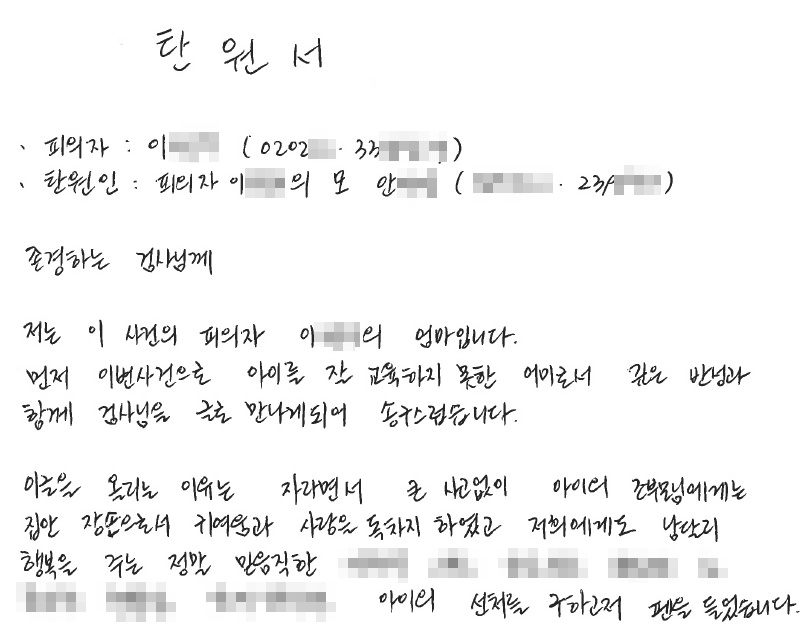 탄 원 서
、 피의자 : 이 (0202 . 33 )
、 탄원인 : 피의자 이 의 모 안 ( . 23 )
존경하는 검사님께
저는 이 사건의 피의자 이 의 엄마입니다.
먼저 이번사건으로 아이를 잘 교육하지 못한 어미로서 깊은 반성과
함께 검사님을 글로 만나게되어 송구스럽습니다.
이글을 올리는 이유는 자라면서 큰 사고없이 아이의 조부모님에게는
집안 장손으로서 귀여움과 사랑을 독차지 하였고 저희에게도 남달리
행복을 주는 정말 믿음직한
아이의 선처를 구하고저 펜을 들었습니다.